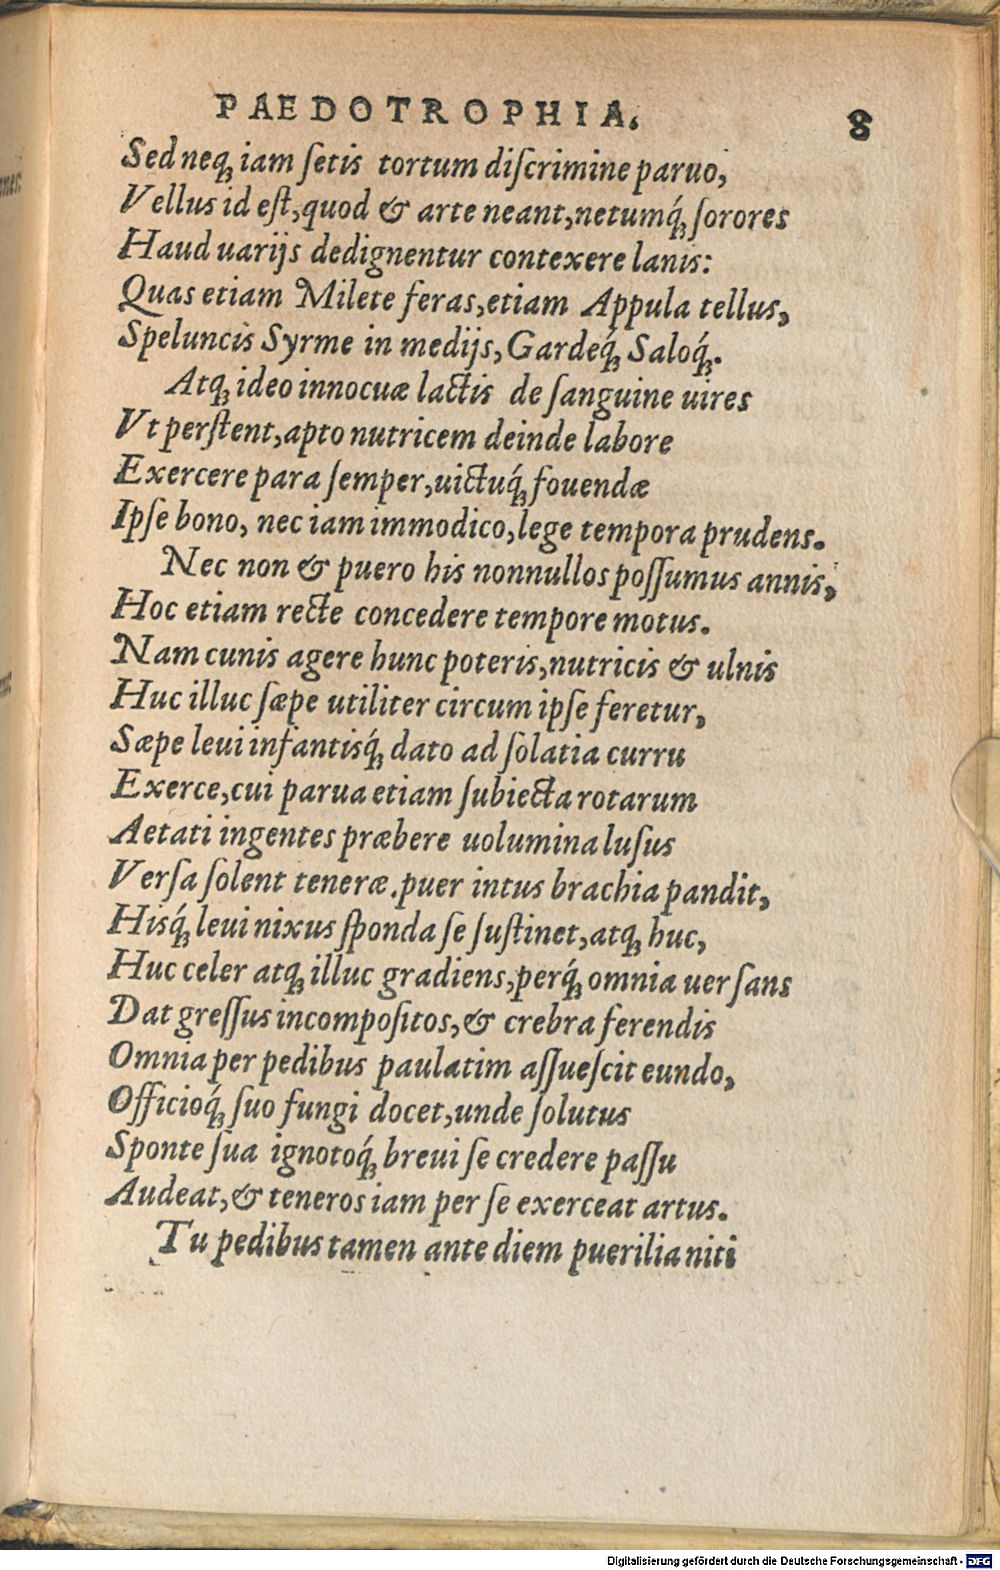 PAEDOTROPHIA. 8
Sed neq; iam ſetis tortum diſcrimine paruo,
Vellus id eſt, quod & arte neant, netumq́; ſorores
Haud uarijs dedignentur contexere lanis:
Quas etiam Milete feras, etiam Appula tellus,
Speluncis Syrme in medijs, Gardeq́; Saloq́;.
Atq; ideo innocuæ lactis de ſanguine uires
Vt perſtent, apto nutricem deinde labore
Exercere para ſemper, uictuq́; fouendæ
Ipſe bono, nec iam immodico, lege tempora prudens.
Nec non & puero his nonnullos poſſumus annis,
Hoc etiam recte concedere tempore motus.
Nam cunis agere hunc poteris, nutricis & ulnis
Huc illuc ſæpe utiliter circum ipſe feretur,
Sæpe leui infantisq́; dato ad ſolatia curru
Exerce, cui parua etiam ſubiecta rotarum
Aetati ingentes præbere uolumina luſus
Verſa ſolent teneræ. puer intus brachia pandit,
Hisq́; leui nixus ſponda ſe ſuſtinet, atq; huc,
Huc celer atq; illuc gradiens, perq́; omnia uerſans
Dat greſſus incompoſitos, & crebra ferendis
Omnia per pedibus paulatim aſſueſcit eundo,
Officioq́; ſuo fungi docet, unde ſolutus
Sponte ſua ignotoq́; breui ſe credere paſſu
Audeat, & teneros iam per ſe exerceat artus.
Tu pedibus tamen ante diem puerilia niti
Digitalisierung gefördert durch die Deutsche Forschungsgemeinschaft - DFG